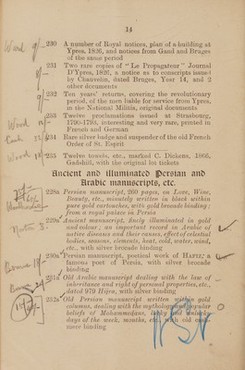 14
230 A number of Royal notices, plan of a building at
Ypres, 1826, and notices from Gand and Bruges
of the same period
231 Two rare copies of "Le Propagateur" Journal
D'Ypres, 1826, a notice as to conscripts issued
by Chauvelin, dated Bruges, Year 14, and 2
other documents
232 Ten years' returns, covering the revolutionary
period, of the men liable for service from Ypres,
in the National Militia, original documents
233 Twelve proclamations issued at Strasbourg,
1790-1793, interesting and very rare, printed in
French and German
234 Rare silver badge and suspender of the old French
Order of St. Esprit
235 Twelve towels, etc., marked C. Dickens, 1866,
Gadshill, with the original lot tickets
Ancient and illuminated Persian and
Arabic manuscripts, etc.
Persian manuscript, 260 pages, on Love, Wine,
Beauty, etc., minutely written in black within
pure gold cartouches, with gold brocade binding;
from a royal palace in Persia
Ancient manuscript, finely illuminated in gold
and colour; an important record in Arabic of
native diseases and their causes, effect of celestial
bodies, seasons, elements, heat, cold, water, wind,
etc., with silver brocade binding
Persian manuscript, poetical work of HAFIZ, a
famous poet of Persia, with silver brocade
binding
Old Arabic manuscript dealing with the law of
inheritance and right of personal properties, etc.,
dated 979 Hijra, with silver binding
Old Persian manuscript written within gold
columns, dealing with the mythology and popular
beliefs of Mohammedans, lucky and unlucky
days of the week, months, etc., with old
binding